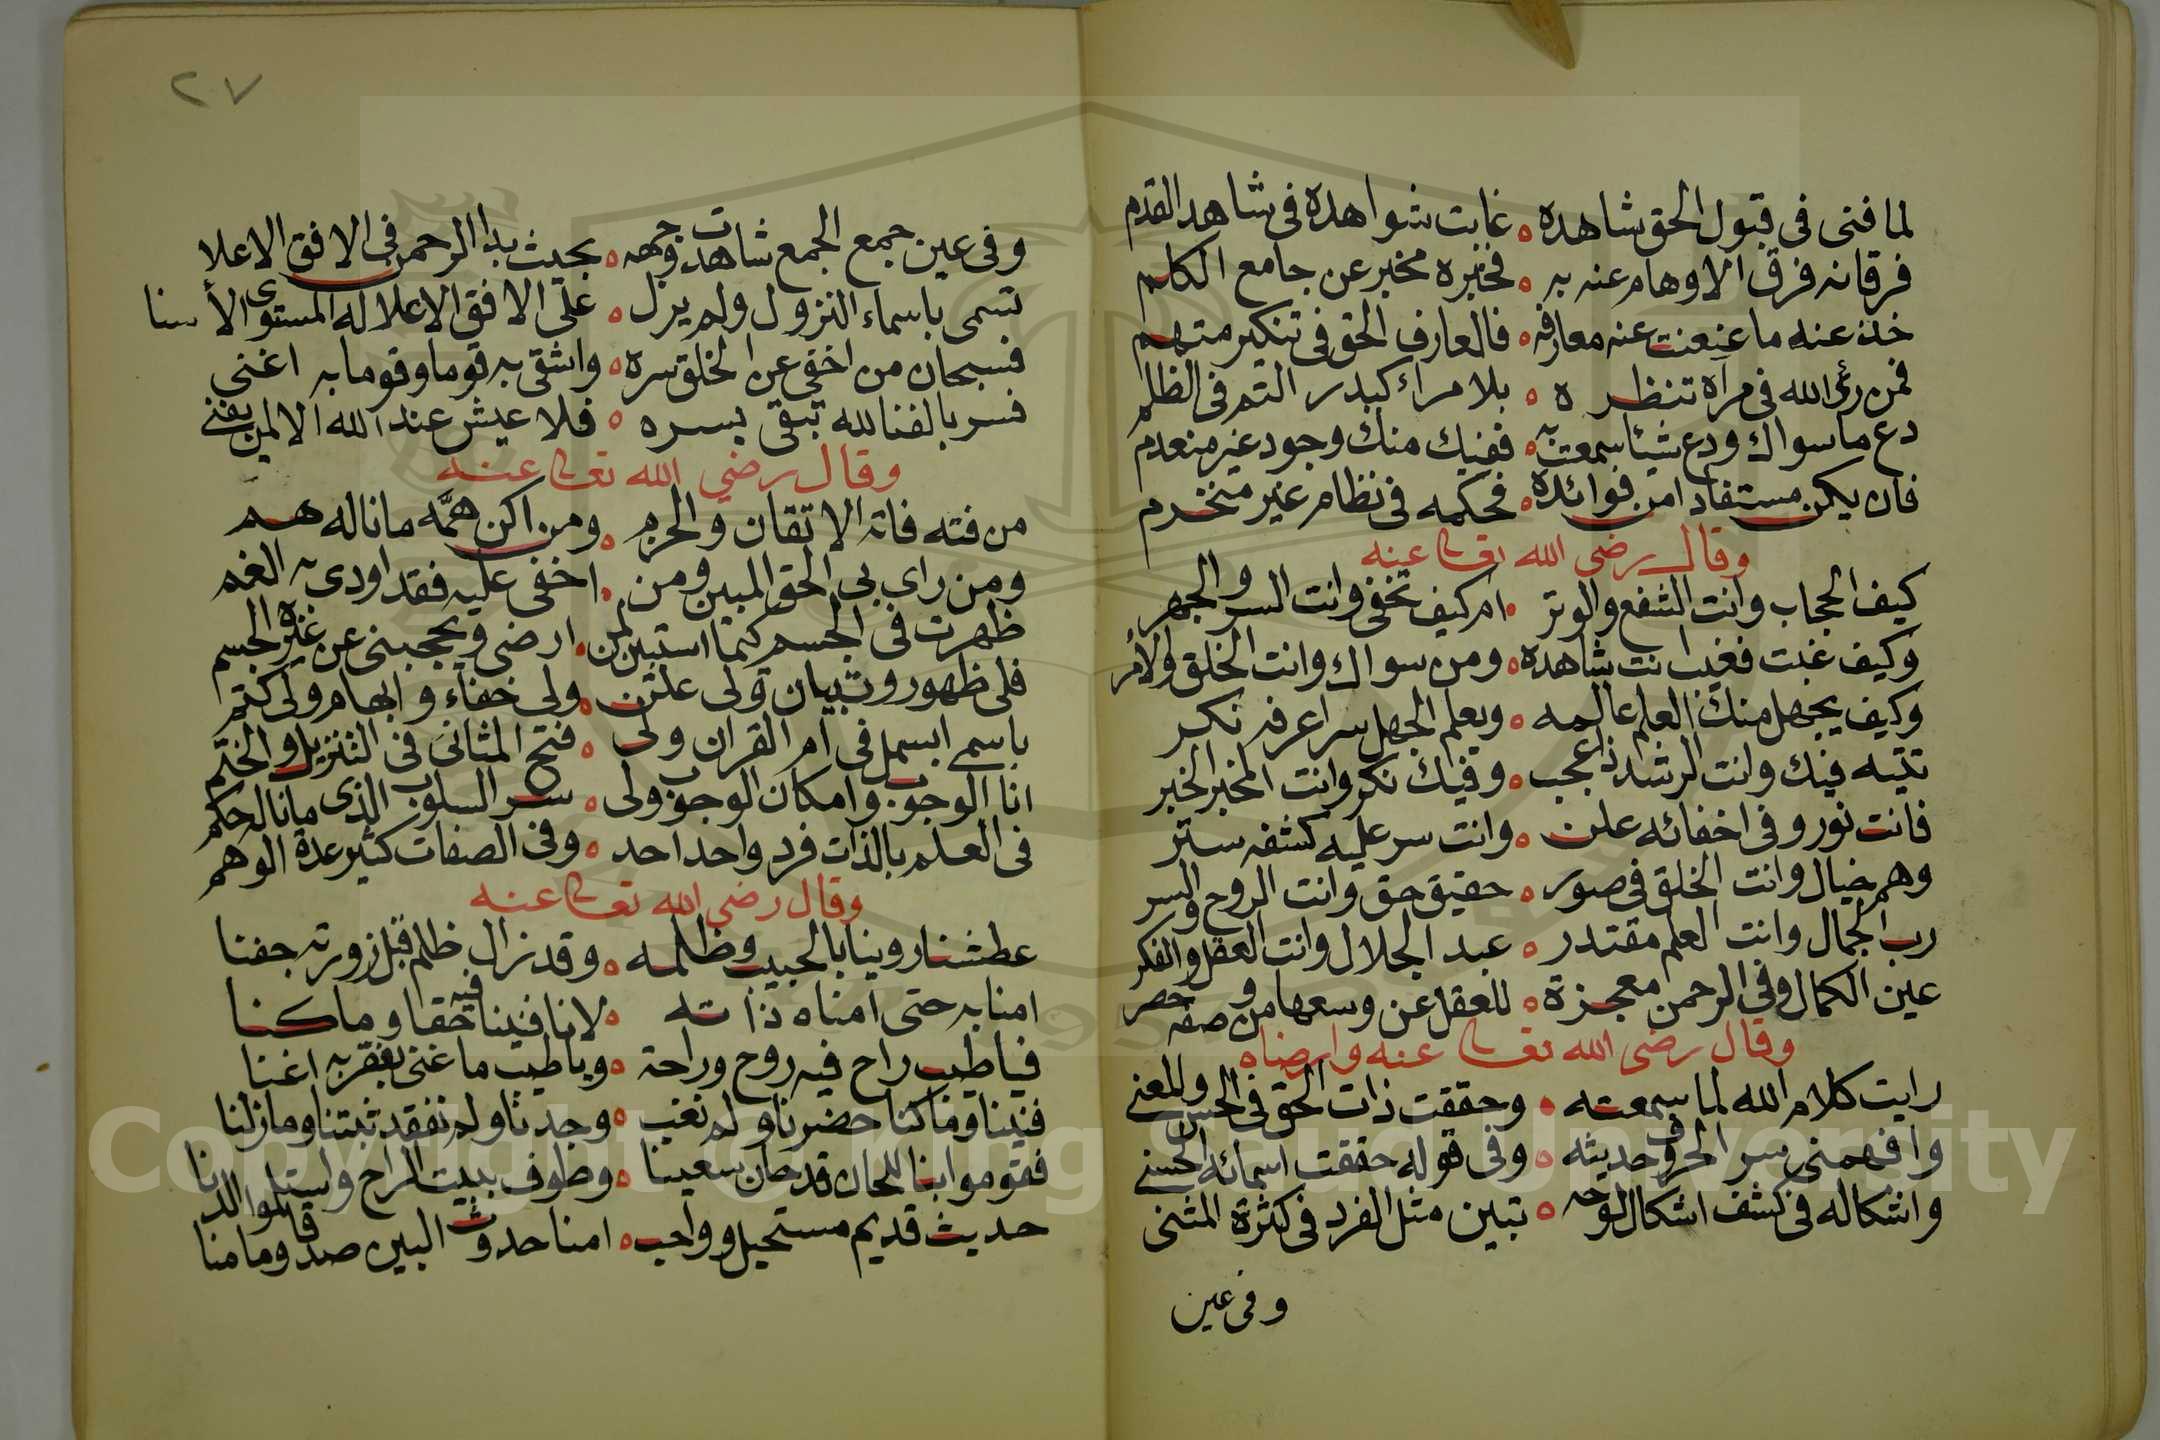 لما فنى فى قبول الحق شاهده ه غابت شواهده فى شاهد القدم
فرقانه فرق الاوهام عنه به ه فخبره مخبر عن جامع الكلم
خذ عنه ما عنعنت عنه معارفه ه فالعارف الحق فى تنكير متهم
فمن رءى الله فى مرآة تنظره ه بلا مراء كبدر التم فى الظلم
دع ما سواك ودع شيئا سمعت به ه ففيك منك وجود غير منعدم
فان يكن مستفادا من فوائده ه فحكمه فى نظام غير منخرم
وقال رضى الله تعالى عنه
كيف الحجاب وانت الشفع والوتر ه ام كيف تخفى وانت السر والجهر
وكيف غبت فغيب انت شاهده ه ومن سواك وانت الخلق والأمر
وكيف يجهل منك العلم عالمه ه وبعلم الجهل سرا عرفه نكر
تتيه فيك وانت الرشد ذا عجب ه وفيك نكر وانت المخبر الخبر
فانت نور وفى اخفائه علن ه وانت سر عليه كشفه ستر
وهم خيال وانت الخلق فى صور ه حقيق حق وانت الروح والسر
رب الجمال وانت العلم مقتدر ه عبد الجلال وانت العقل والفكر
عين الكمال وفى الرحمن معجزة ه للعقل عن وسعها من صفه حصر
وقال رضى الله تعالى عنه وارضاه
رايت كلام الله لما سمعته ه وحققت ذات الحق فى الحس والمعنى
وافهمنى سر الحروف حديثه ه وفى قوله حققت اسمائه الحسنى
واشكاله فى كشف اشكال لوحه ه تبين مثل الفرد فى كثرة المثنى
وفى عين
٢٧
وفى عين جمع الجمع شاهدت وجهه ه بحيث بدا الرحمن فى الافق الاعلا
تسمى باسماء النزول ولم يزل ه على الافق الاعلا له المستوى الأسنا
فسبحان من اخفى عن الخلق سره ه واشقى به قوما وقوما به اغنى
فسر بالفنا لله تبقى بسره ه فلا عيش عند الله الا لمن يفنى
وقال رضي الله تعالى عنه
من فته فاته الاتقان والحزم ه ومن اكن همه ما ناله هم
ومن راى بى الحق المبين ومن ه اخفى عليه فقد اودى به الغم
ظهرت فى الجسم كتما استبين لمن ه ارضى ويحجبنى عن غيره الجسم
فلى ظهور وتبيان ولى علن ه ولى خفاء وابهام ولى كتم
باسمى ابسمل فى ام القران ولى ه فتح المثانى فى التنزيل والختم
انا الوجوب وامكان الوجوب ولى ه سر السلوب الذى ما ناله حكم
فى العلم بالذات فرد واحد احد ه وفى الصفات كثير عدة الوهم
وقال رضى الله تعالى عنه
عطشنا روينا بالحبيب وظلمه ه وقد نزال ظلم قبل زورته جفنا
امنا به حتى امناه ذاته ه لانا فينا فيه حقا وما كنا
فيا طيب راح فيه روح وراحة ه ويا طيب ما غنى بفقر به اغنا
فنينا وما كنا حضرنا ولم نغب ه وجدنا ولم نفقد ثبتنا وما زلنا
فقوموا بنا للحان قد حان سعينا ه وطوف ببيت الراح واستلموا الدنا
حديث قديم مستحيل وواجب ه امنا حدوث البين صدقا وما منا